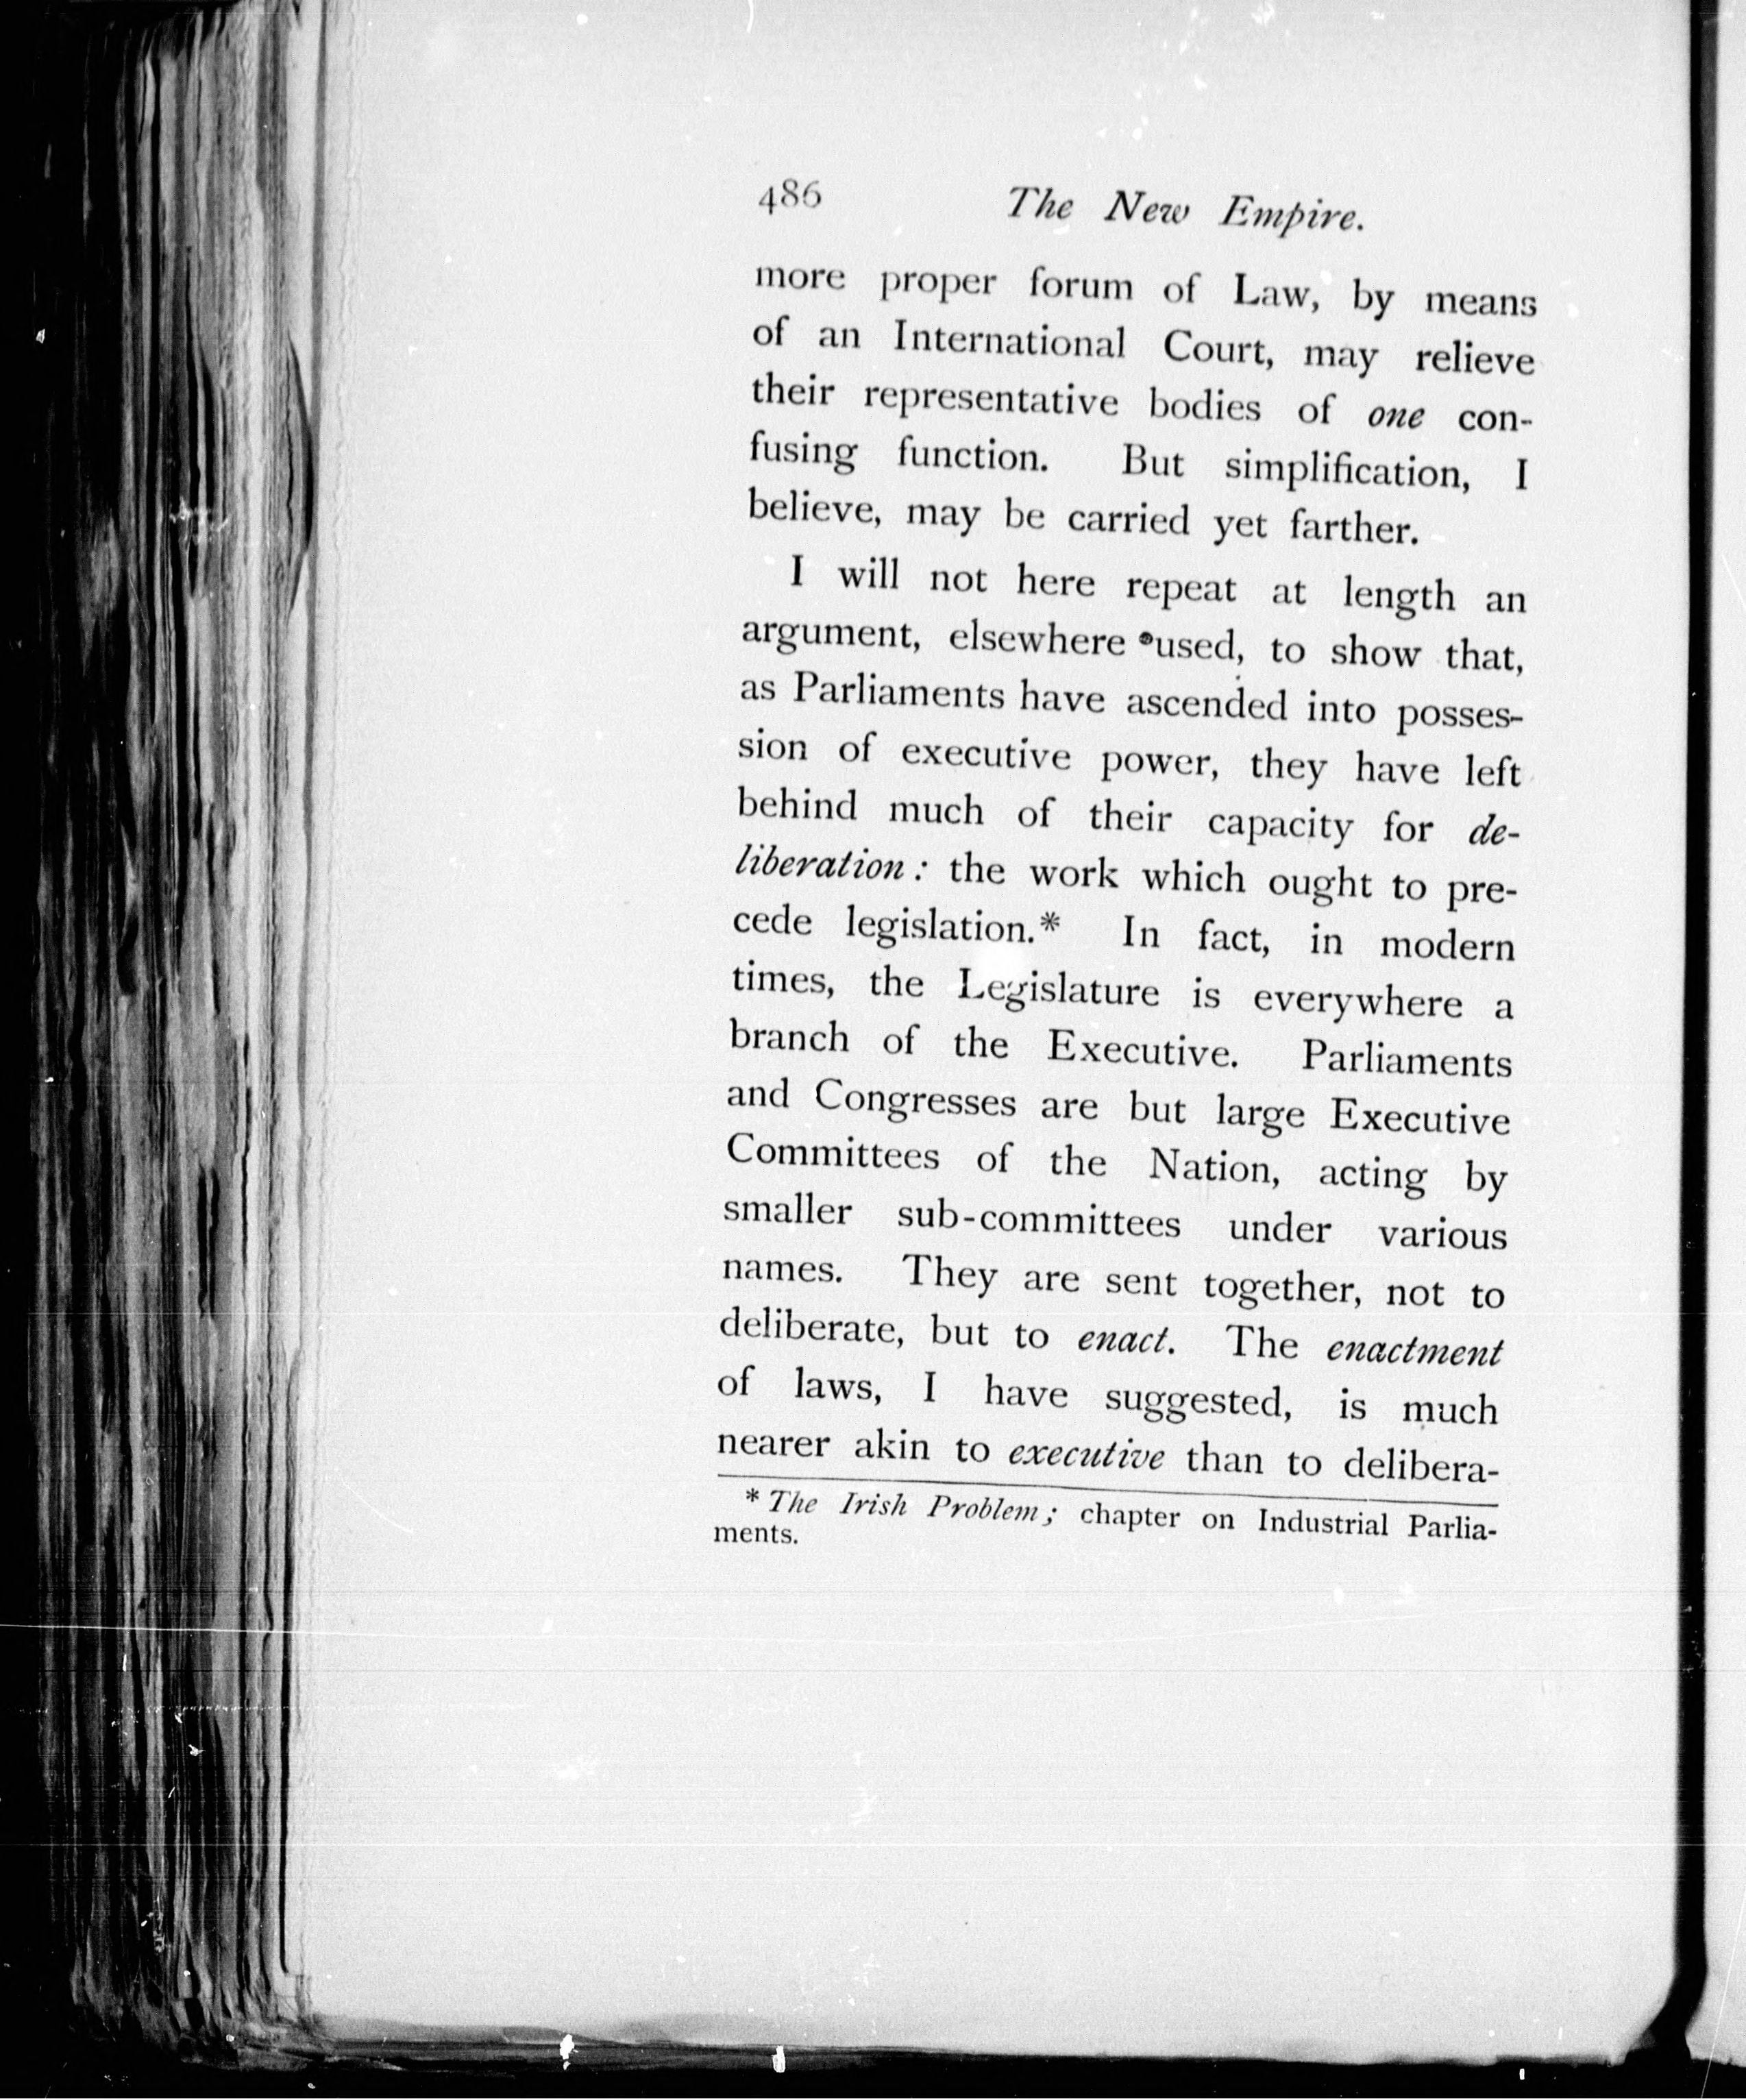 486 The New Empire.
more proper forum of Law, by means
of an International Court, may relieve
their representative bodies of one con-
fusing function. But simplification, I
believe, may be carried yet farther.
I will not here repeat at length an
argument, elsewhere used, to show that,
as Parliaments have ascended into posses-
sion of executive power, they have left
behind much of their capacity for de-
liberation: the work which ought to pre-
cede legislation.* In fact, in modern
times, the Legislature is everywhere a
branch of the Executive. Parliaments
and Congresses are but large Executive
Committees of the Nation, acting by
smaller sub-committees under various
names. They are sent together, not to
deliberate, but to enact. The enactment
of laws, I have suggested, is much
nearer akin to executive than to delibera-
* The Irish Problem; chapter on Industrial Parlia-
ments.